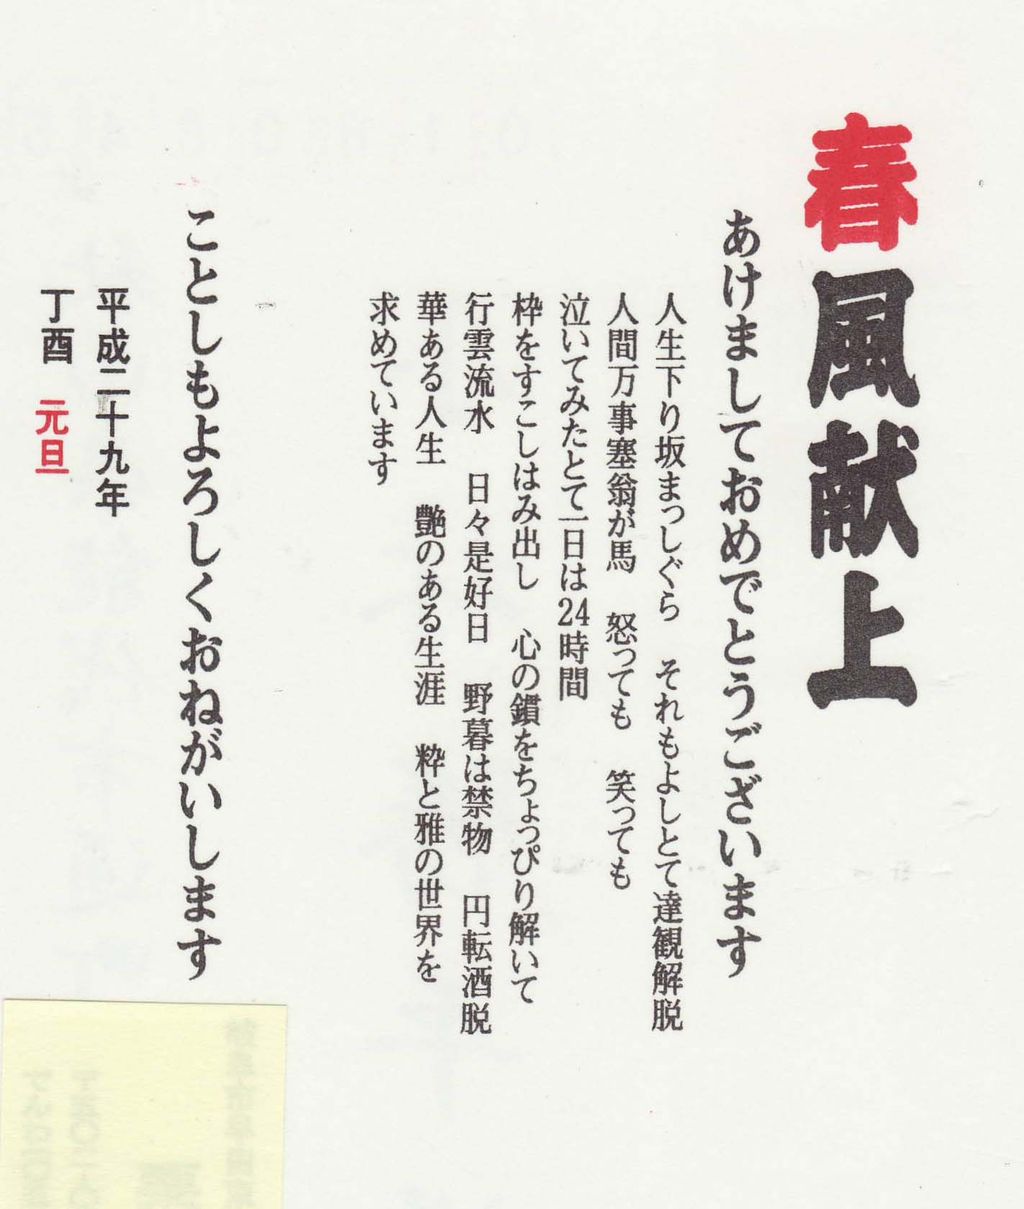 春風献上
あけましておめでとうございます
人生下り坂まっしぐら それもよしとて達観解脱
人間万事塞翁が馬 怒っても 笑っても
泣いてみたとて一日は24時間
枠をすこしはみ出し 心の鎖をちょっぴり解いて
行雲流水 日々是好日 野暮は禁物 円転酒脱
華ある人生 艶のある生涯 粋と雅の世界を
求めています
ことしもよろしくおねがいします
平成二十九年
丁酉 元旦